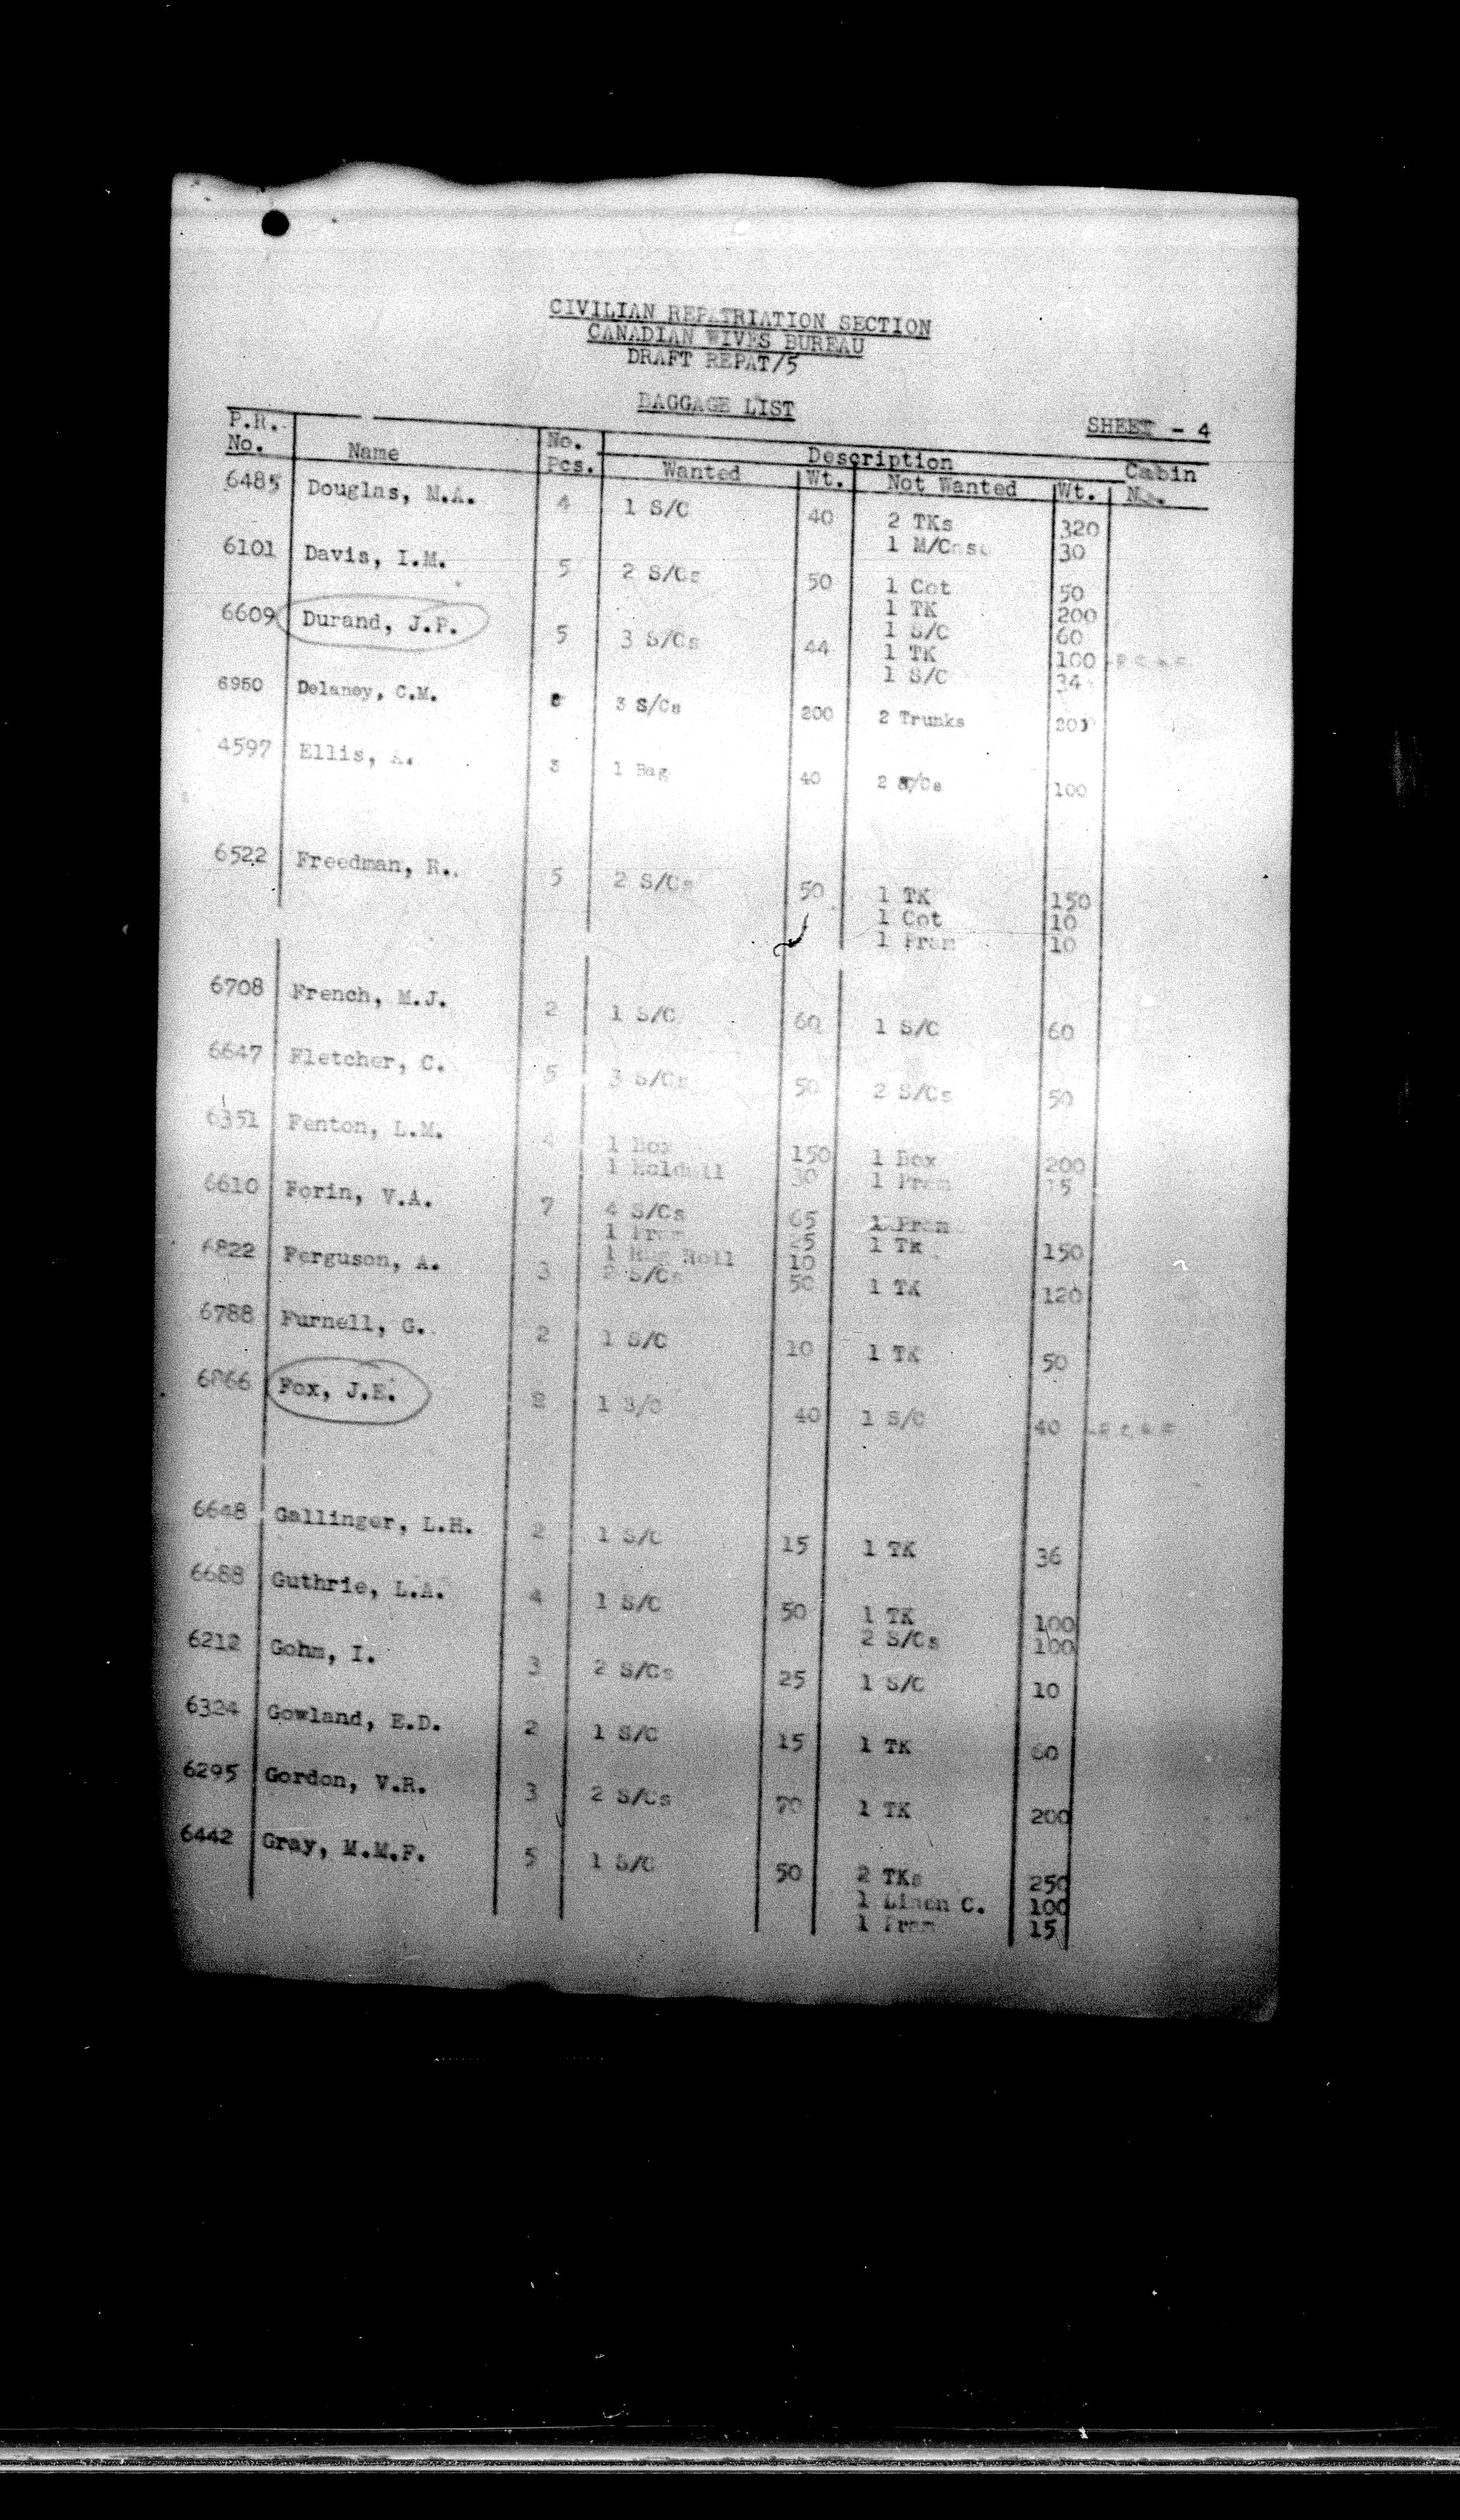 CIVILIAN REPATRIATION SECTION
CANADIAN WIVES BUREAU
DRAFT REPAT/5
BAGGAGE LIST
SHEET - 4
P.R. No. Name No. Pcs. Description Wanted Wt. Not Wanted Wt. Cabin No.
6485 Douglas, M.A. 4 1 S/C 40 2 TKs 320
1 M/Case 30
6101 Davis, I.M. 5 2 S/Cs 50 1 Cot 50
1 TK 200
1 S/C 60
6609 Durand, J.P. 5 3 S/Cs 44 1 TK 100 R C A F
1 S/C 34
6950 Delaney, C.M. 3 S/Cs 200 2 Trunks 200
4597 Ellis, A. 3 1 Bag 40 2 S/Cs 100
6522 Freedman, R. 5 2 S/Cs 50 1 TK 150
1 Cot 10
1 Pram 10
6708 French, M.J. 2 1 S/C 60 1 S/C 60
6647 Fletcher, C. 5 3 S/Cs 50 2 S/Cs 50
6351 Fenton, L.M. 4 1 Box 150 1 Box 200
1 Holdall 30 1 Pram 15
6610 Forin, V.A. 7 4 S/Cs 65 1 Pram
1 Pram 25 1 TK 150
1 Rug Roll 10
6822 Ferguson, A. 3 2 S/Cs 50 1 TK 120
6788 Furnell, G. 2 1 S/C 10 1 TK 50
6866 Fox, J.E. 2 1 S/C 40 1 S/C 40 R C A F
6648 Gallinger, L.H. 2 1 S/C 15 1 TK 36
6688 Guthrie, L.A. 4 1 S/C 50 1 TK 100
2 S/Cs 100
6212 Gohm, I. 3 2 S/Cs 25 1 S/C 10
6324 Gowland, E.D. 2 1 S/C 15 1 TK 60
6295 Gordon, V.R. 3 2 S/Cs 70 1 TK 200
6442 Gray, M.M.F. 5 1 S/C 50 2 TKs 250
1 Linen C. 100
1 Pram 15